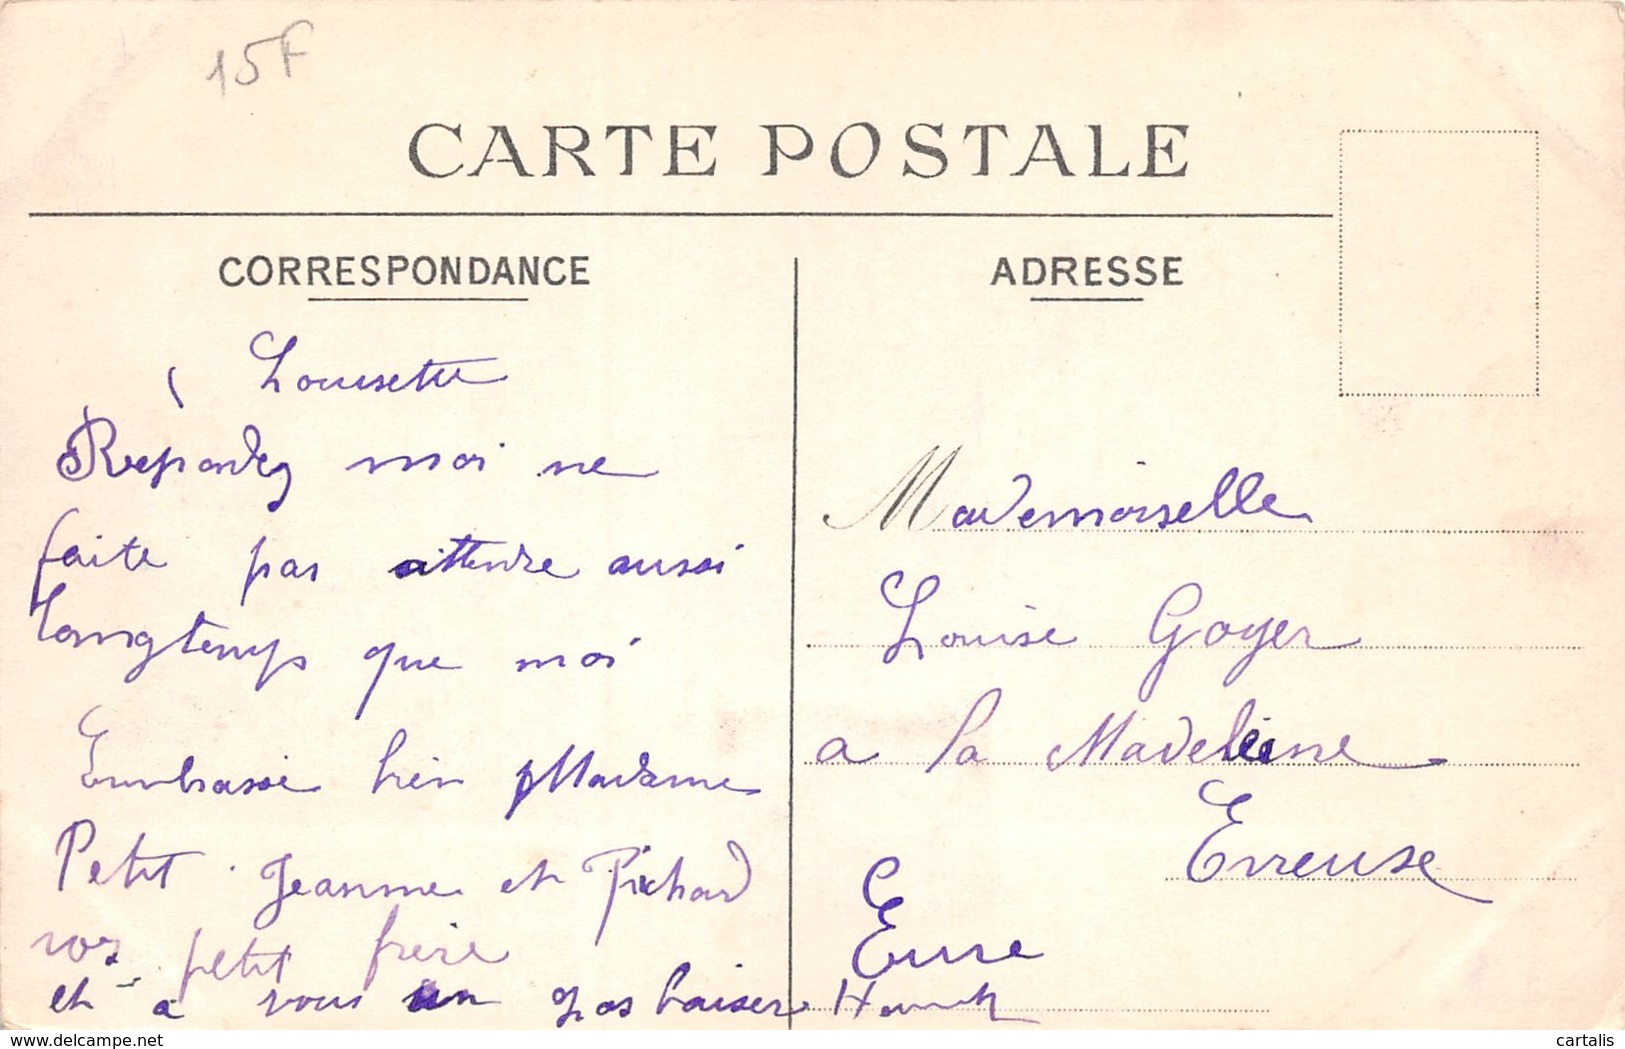 15F
CARTE POSTALE
CORRESPONDANCE
Lousette
Repondez moi ne
faite pas attendre aussi
longtemps que moi
Embrassé bien Madame
Petit Jeanne et Pichard
vos petit frère
et a vous un gos baiser
ADRESSE
Mademoiselle
Louise Goyer
a la Madeleine
Erreuse
Eure
www.delcampe.net
cartalis